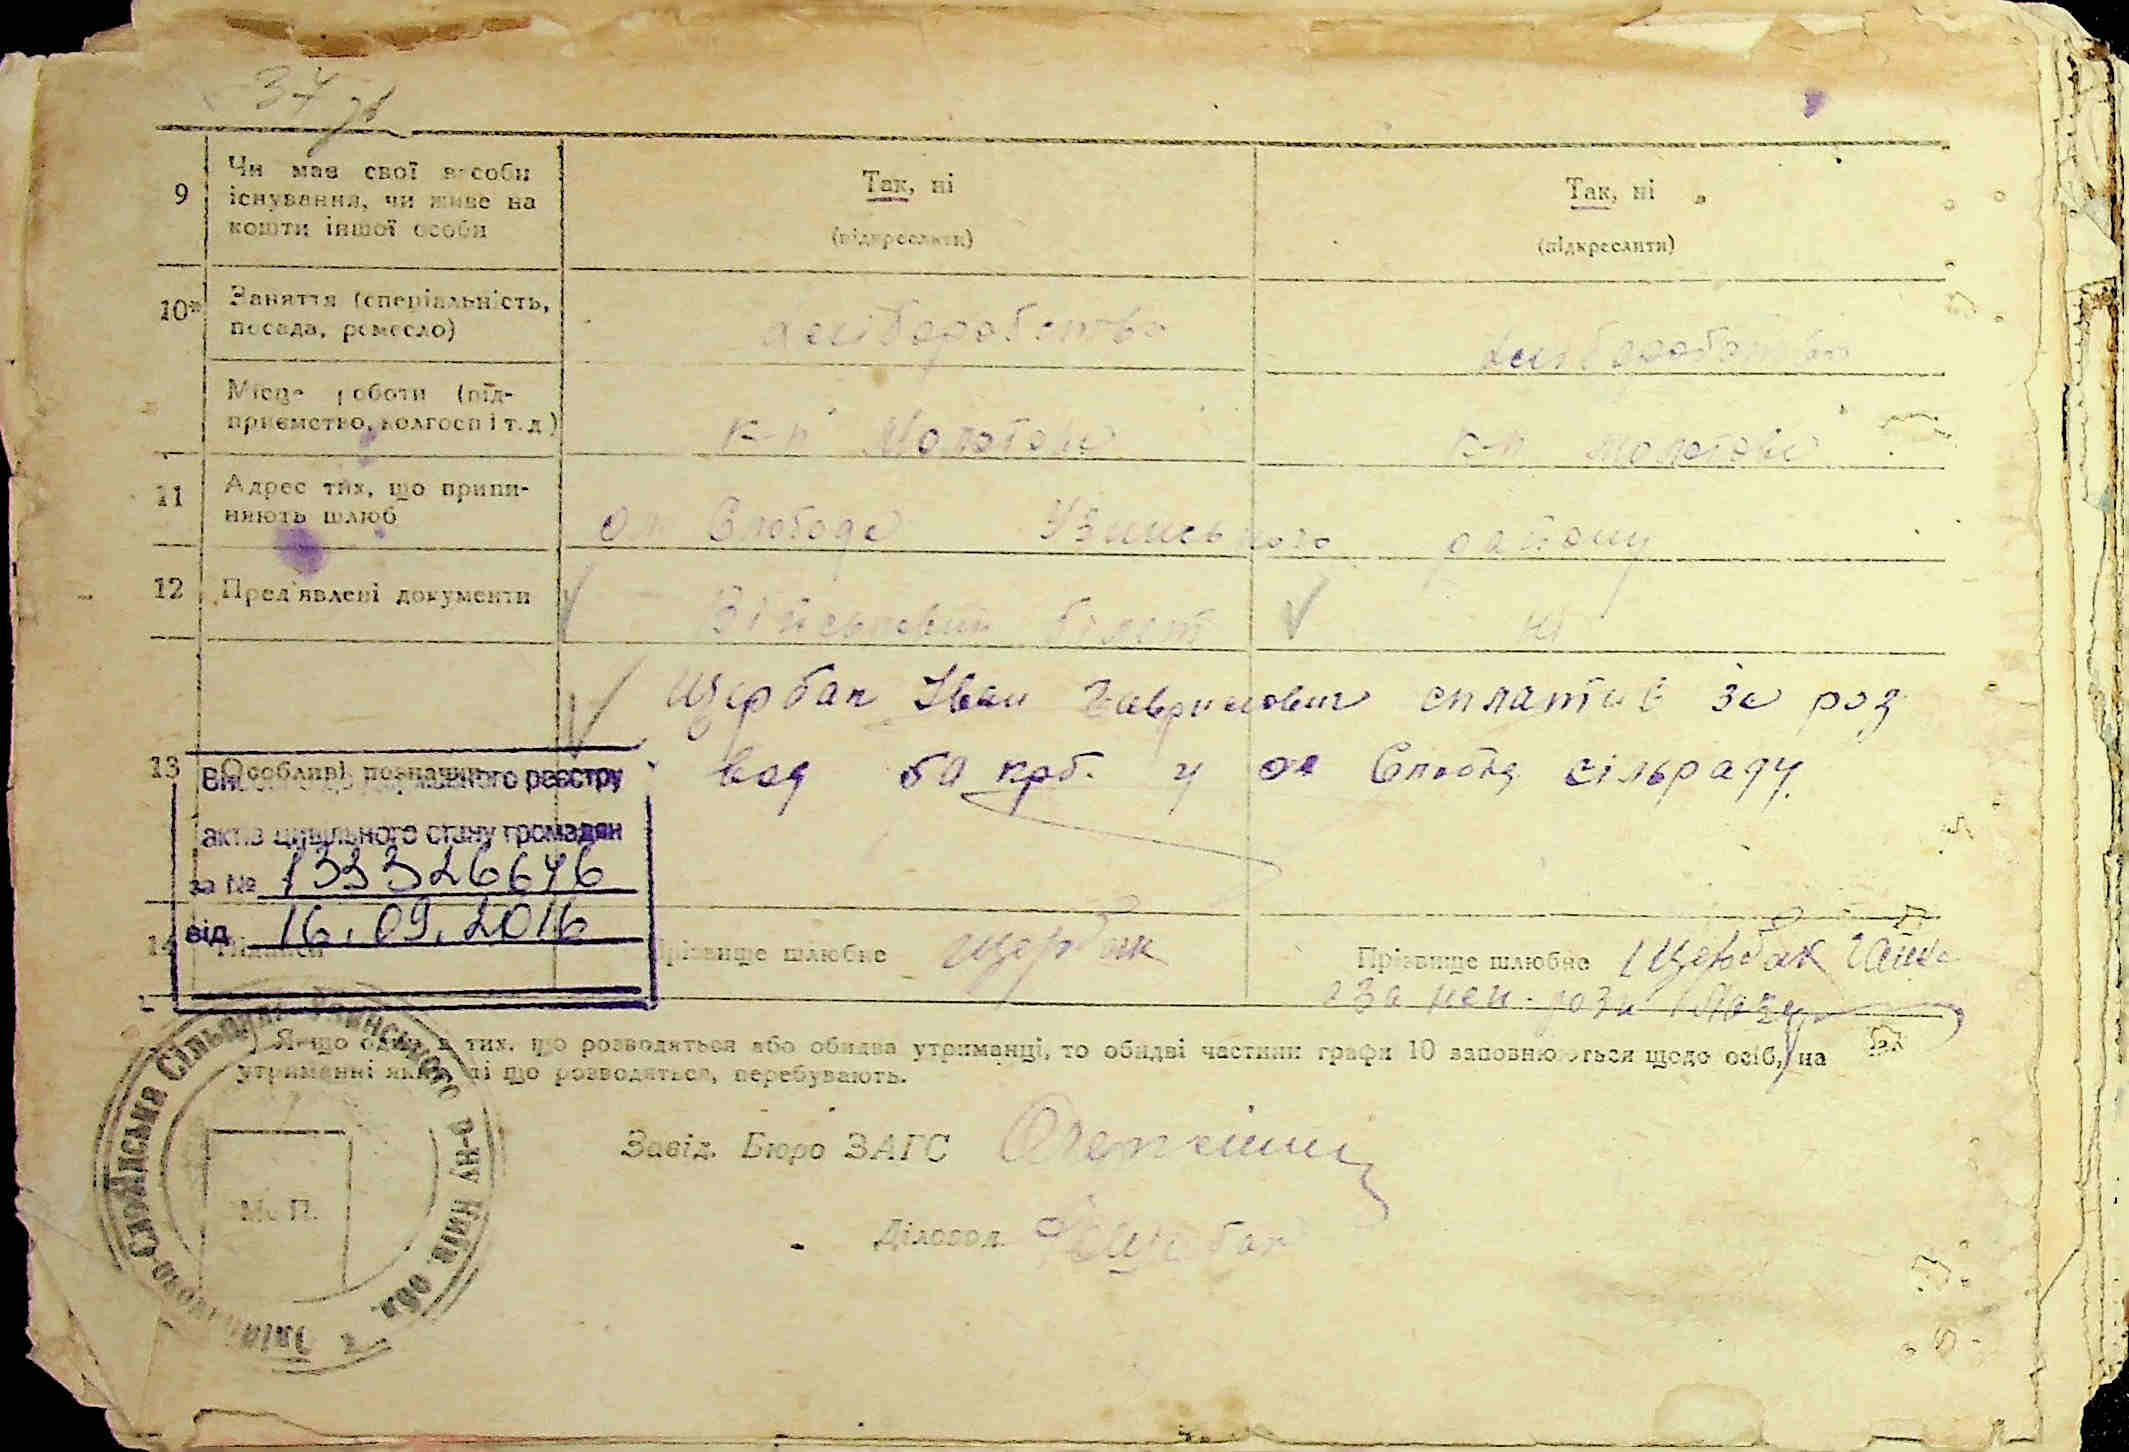 37 зв
9 Чи має свої засоби існування, чи живе на кошти іншої особи
Так, ні
(підкреслити)
Так, ні
(підкреслити)
10* Заняття (спеціальність, посада, ремесло)
хліборобство
хліборобство
Місце роботи (підприємство, колгосп і т. д.)
к-п Молотова
к-п Молотова
11 Адрес тих, що припиняють шлюб
Слобода Узинського району
12 Пред'явлені документи
Військовий білет
ні
13 Особливі позначки
Щербак Іван Гаврилович сплатив за роз
вод 50 крб. у Слобід сільраду.
державного реєстру
актів цивільного стану громадян
за № 133326646
від 16.09.2016
14 Підписи
Прізвище шлюбне Щербак
Прізвище шлюбне Щербак
за неї
*) Якщо один з тих, що розводяться або обидва утриманці, то обидві частини графи 10 заповнюються щодо осіб, на
утриманні яких ті що розводяться, перебувають.
Завід. Бюро ЗАГС
Діловод Щербак
М. П.
Слобідська Сільрада Узинського р-ну Київ. обл.